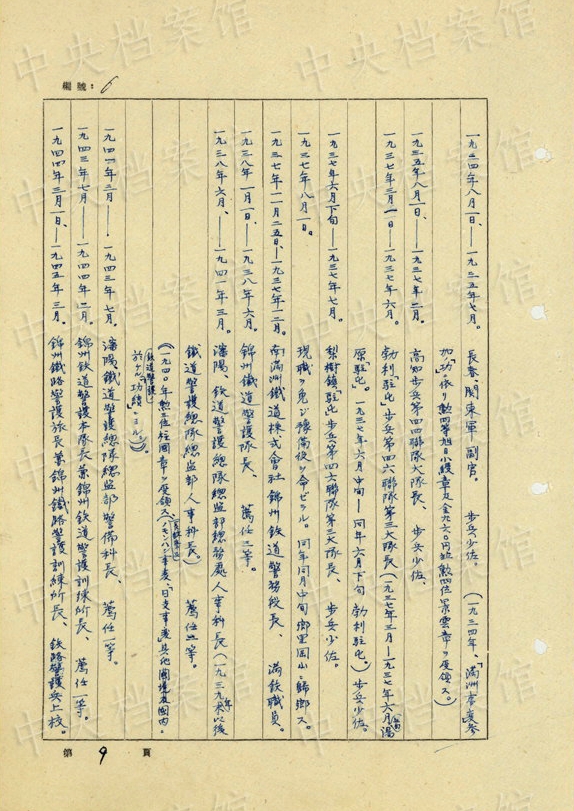 編號：6
一九三四年八月一日、——一九三五年七月。　長春、関東軍副官。　歩兵少佐。（一九三四年、「満洲事変参
加」功ニ依リ勲四等旭日小綬章及金九六〇円竝勲四位景雲章ヲ受領ス。）
一九三五年八月一日、——一九三七年二月。　高知歩兵第四四聯隊大隊長、　歩兵少佐。
一九三七年三月一日——一九三七年六月。　勃利駐屯歩兵第四六聯隊第三大隊長（一九三七年三月——一九三七年六月
原駐屯。一九三七年六月中旬——同年六月下旬　勃利駐屯。）歩兵少佐。
一九三七年六月下旬——一九三七年七月。　梨樹鎮駐屯歩兵第四六聯隊第三大隊長、　歩兵少佐。
一九三七年八月一日。　現職ヲ免ジ豫備役ヲ命ゼラル。同年同月中旬　郷里岡山ニ帰郷ス。
一九三七年一一月二五日、——一九三七年一二月。　南満洲鐵道株式會社　錦州鉄道警務段長、　満鉄職員。
一九三八年一月一日、——一九三八年六月。　錦州鉄道警護隊長、　薦任二等。
一九三八年六月、——一九四一年三月。　瀋陽、鉄道警護總隊總監部總務處人事科長（一九三九年末以後
鐵道警護總隊總監部人事科長。）　薦任二等。
（一九四〇年勲三位柱國章ヲ受領ス、「ノモンハン」事変、「日支事変」其他國境及國内
鉄道警護ニ
於ケル功績ニヨル）。
一九四一年三月——一九四三年七月。　瀋陽鐵道警護總隊總監部警備科長、　薦任一等。
一九四三年七月——一九四四年二月。　錦州鉄道警護本隊長兼錦州鉄道警護訓練所長、　薦任一等。
一九四四年三月一日、——一九四五年三月。　錦州鐵路警護旅長兼錦州鐵路警護訓練所長、　鉄路警護兵上校。
第　9　頁
中央档案馆